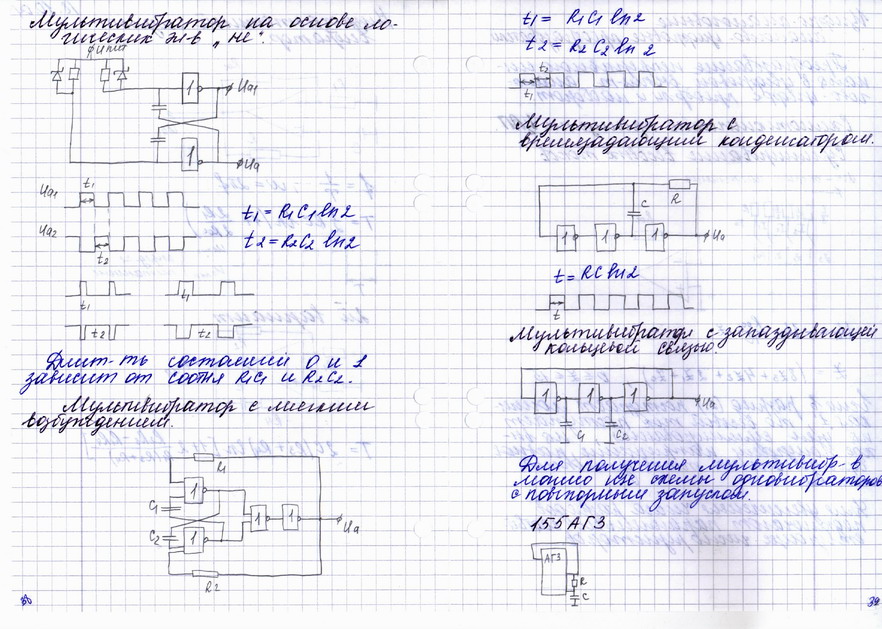 Мультивибратор на основе ло-
гических эл-в "не".
Uпит
1
Uа1
1
Uа
Uа1
t1
t1 = R1C1 ln2
Uа2
t2 = R2C2 ln2
t2
t1
t1
t2
t2
Длит-ть состояний 0 и 1
зависит от соотн R1C1 и R2C2.
Мультивибратор с мягким
возбуждением.
R1
1
C1
1
1
Uа
C2
1
R2
38
t1 = R1C1 ln2
t2 = R2C2 ln2
t2
t1
Мультивибратор с
времязадающим конденсатором.
C
R
1
1
1
Uа
t = RC ln2
t
Мультивибратор с запаздывающей
кольцевой связью.
1
1
1
Uа
C1
C2
Для получения мультивибр-в
можно исп схемы одновибраторов
с повторным запуском.
155АГ3
АГ3
R
C
39